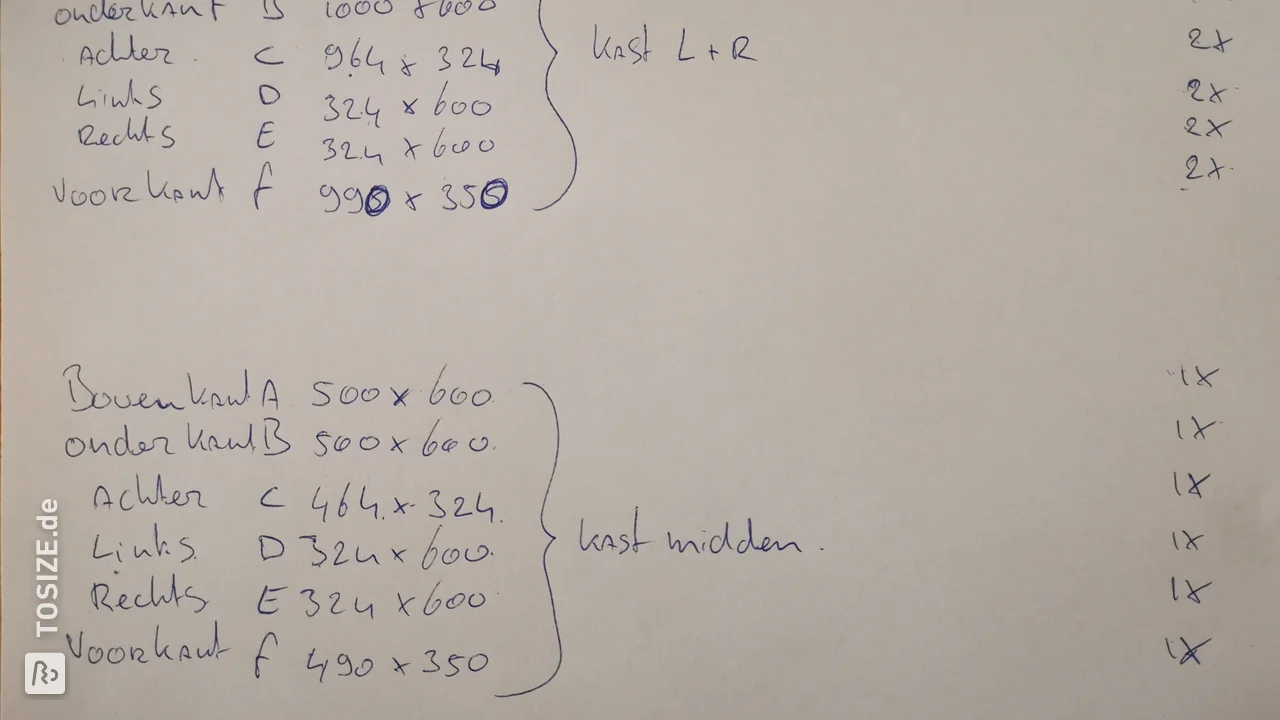 onderkant B 1000 x 600
Achter C 964 x 324 kast L + R 2x
Links D 324 x 600 2x
Rechts E 324 x 600 2x
Voorkant f 990 x 350 2x
Bovenkant A 500 x 600. 1x
onderkant B 500 x 600. 1x
Achter C 464 x 324. 1x
Links D 324 x 600. kast midden. 1x
Rechts E 324 x 600 1x
Voorkant f 490 x 350 1x
TOSIZE.de